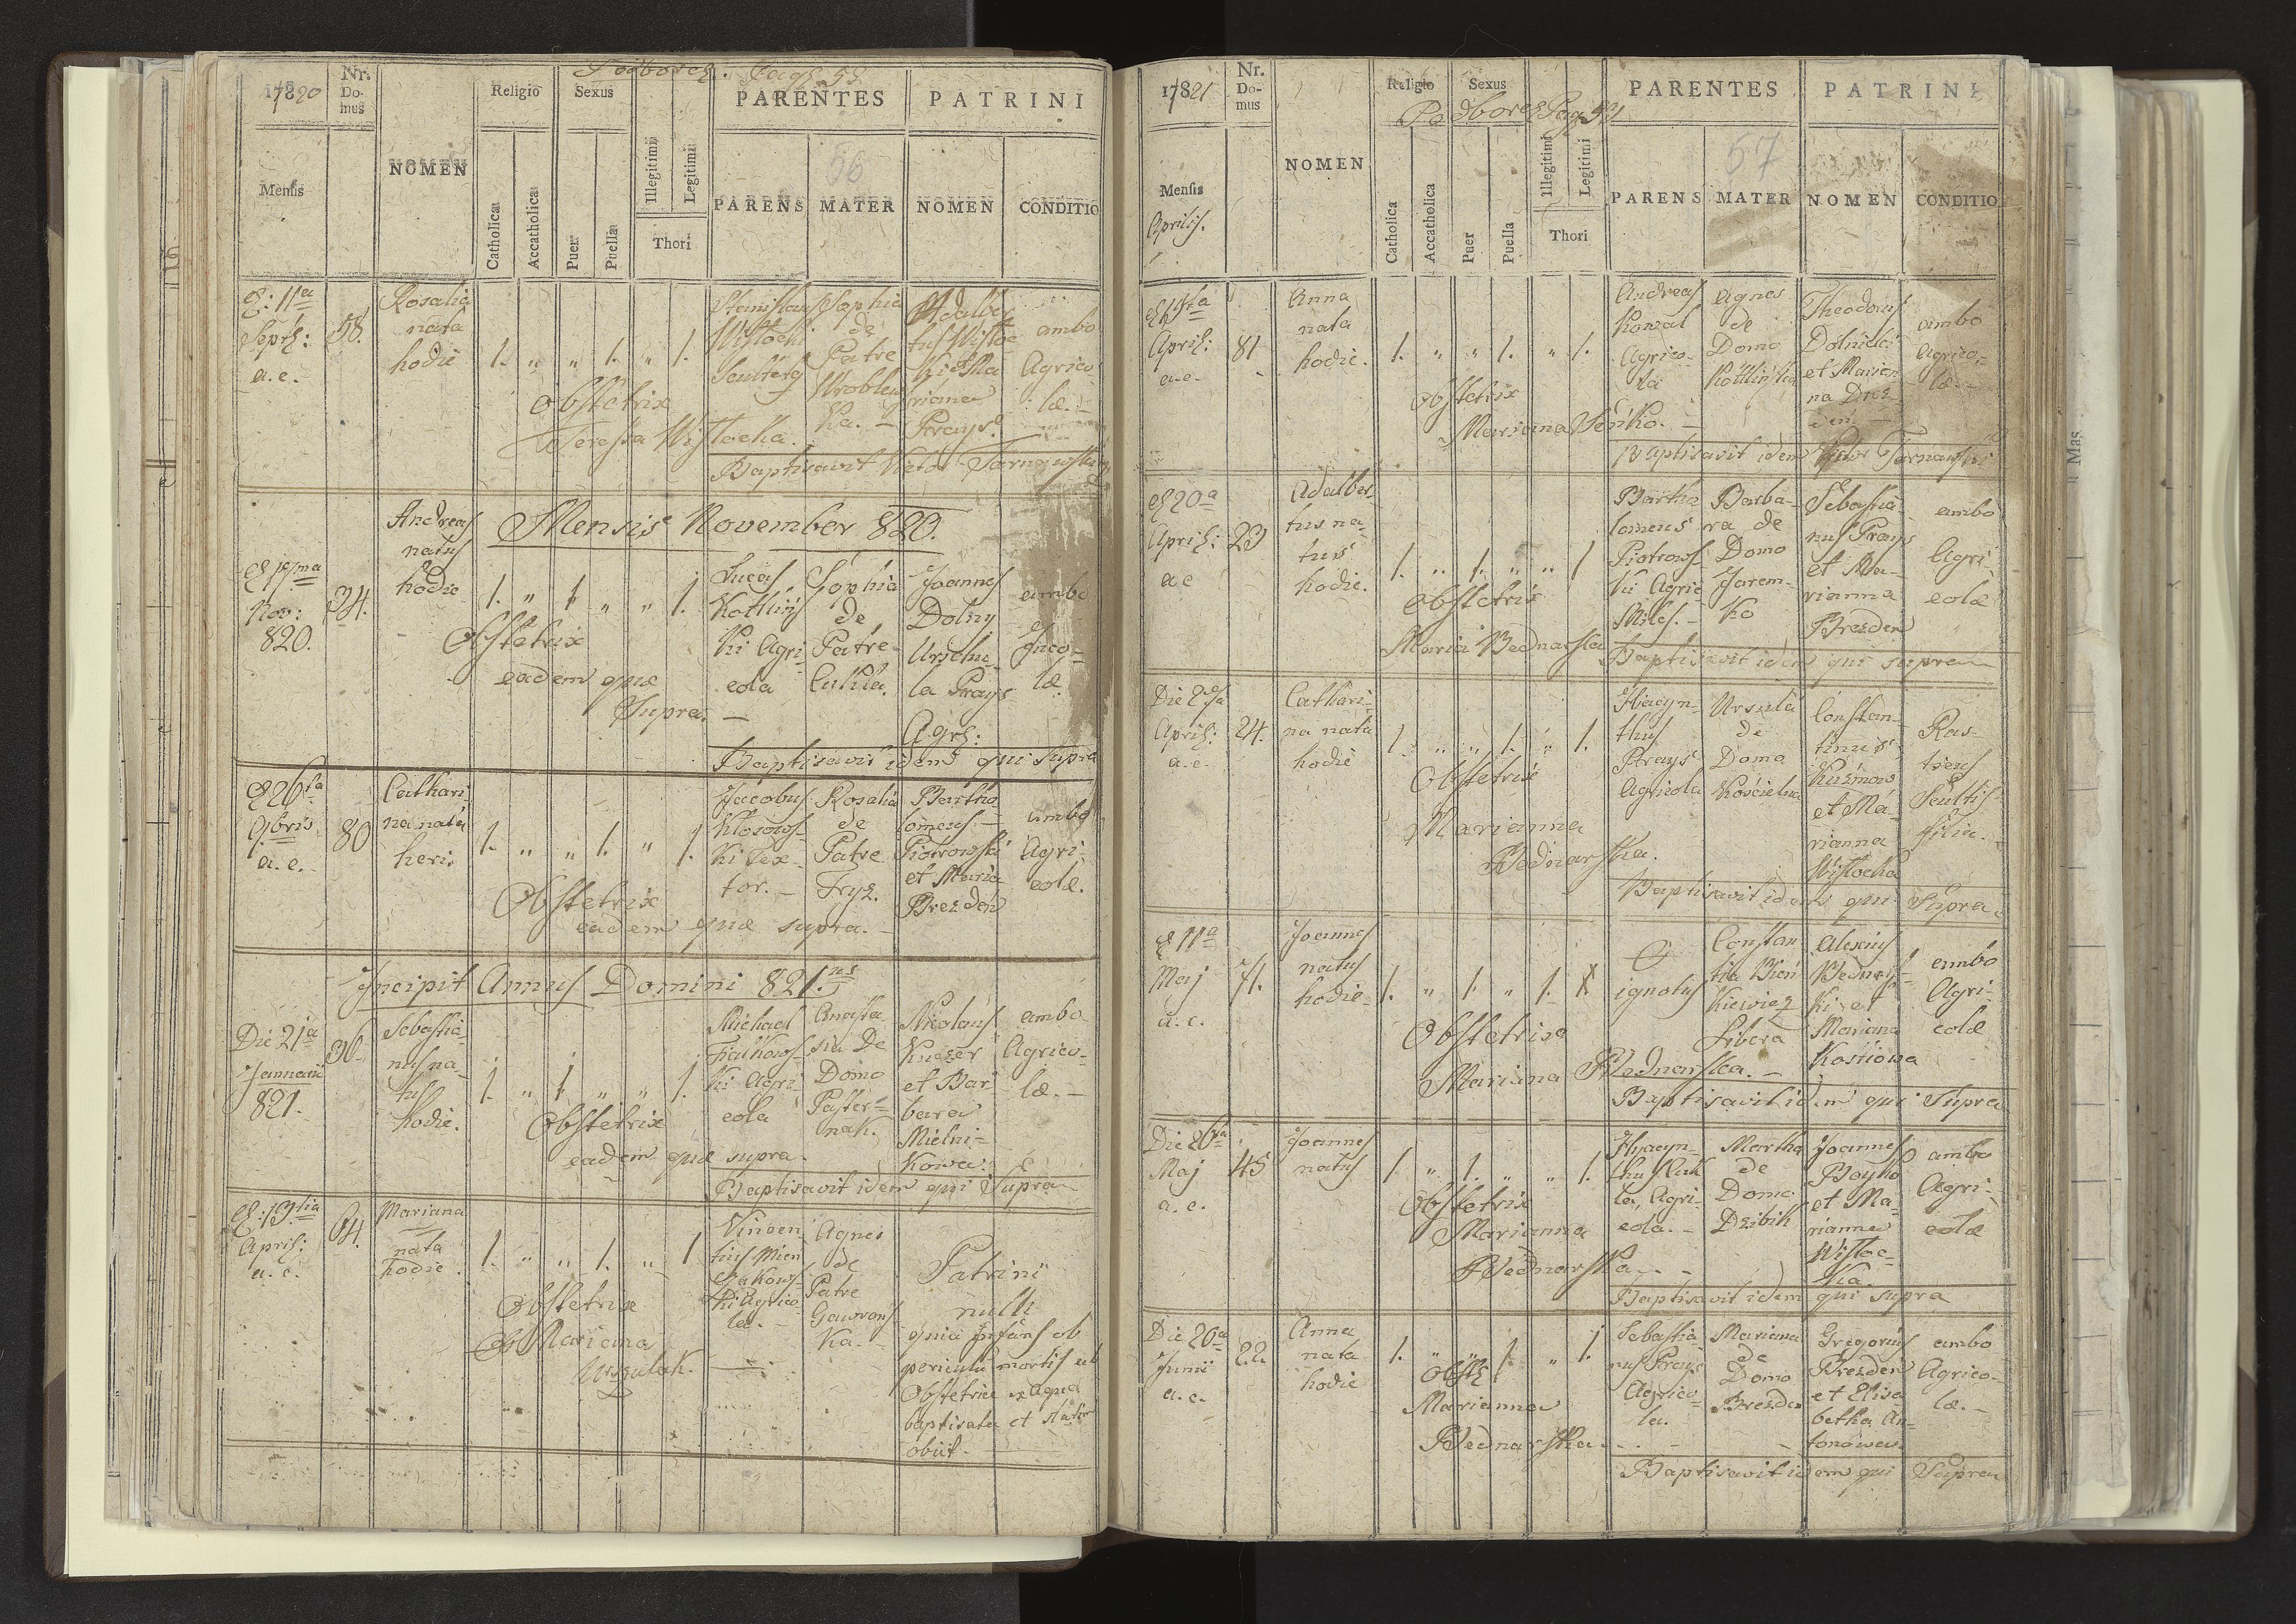 17820
Nr. Domus
Podborcz. Pag: 55.
Religio
Sexus
PARENTES
PATRINI
Mensis
NOMEN
Catholica
Accatholica
Puer
Puella
Illegitimi
Legitimi
Thori
56
PARENS
MATER
NOMEN
CONDITIO
11a
58.
Rosalia
nata
hodie
a. c.
1. " " 1. " 1.
Stanislaus
Wistocki
Sophia
de
Patre
Wroblew
ka. –
Adalber
tus Wistoc
ki et Ma
rianna
Prays
ambo
Agrico
læ. –
Obstetrix
Teressa Wistocka.
Baptisavit Victor Tarnawski
Mensis November 820.
Nov:
820.
34.
Andreas
natus
hodie
1. " 1 " " 1.
Lucas
Kotliń
ki Agri
cola
Sophia
de
Patre
Joannes
Dolny
Ursulla
la Prays
Agrl:
ambo
Inco
læ.
Obstetrix
eadem quæ
Supra. –
Baptisavit idem qui supra
26ta
9bris
a. c.
80
Cathari
na nata
heri.
1. " " 1. " 1.
Jacobus
Klosows
ki Tex
tor. –
Rosalia
de
Patre
Fryz.
Bartho
lomeus –
Piotrowski
et Maria
Brezden
ambo
Agri
colæ.
Obstetrix
eadem quæ supra. –
Incipit Annus Domini 821.us
Die 21a
Januarii
821.
36.
Sebastia
nus na
tus
hodie.
1. " 1 " " 1.
Michael
Fialkows
ki Agri
cola
Anasta
sia de
Domo
Paster
nak.
Nicolaus
Kuczer
et Bar
bara
Mielni
kowa.
ambo
Agrico
læ. –
Obstetrix
eadem quæ supra.
Baptisavit idem qui Supra
13tia
April:
a. c.
64.
Mariana
nata
hodie.
1. " " 1. " 1
Vincen
tius Mien
czakows
ki Agrico
la. –
Agnes
de
Patre
Gawrons
ka. –
Patrini
nulli
quia Infans ob
periculu mortis ab
Obstetrice ex aqua
baptisata et statim
obiit. –
Obstetrix
Mariana
Urszulak.
17821
Nr. Domus
Religio
Sexus
Podborcz Pag
PARENTES
PATRINI
Mensis
Aprilis.
NOMEN
Catholica
Accatholica
Puer
Puella
Illegitimi
Legitimi
Thori
57
PARENS
MATER
NOMEN
CONDITIO
April:
a. c.
81
Anna
nata
hodie.
1. " " 1. " 1.
Andreas
Kowal
Agrico
la
Agnes
de
Domo
Kotlińska
Theodorus
Dolnicki
et Marian
na Brez
den. –
ambo
Agrico
læ. –
Obstetrix
Mariana Seńko. –
Baptisavit idem Victor Tarnawski
20a
April:
a c
23
Adalber
tus na
tus
hodie.
1. " 1. " " 1
Bartho
lomeus
Piotrows
ki Agric
Miles. –
Barba
ra de
Domo
Jarem
ko
Sebastia
nus Prays
et Ma
rianna
Brezden
ambo
Agri
colæ
Obstetrix
Maria Bednarska
Baptisavit idem qui supra
April:
a. c.
24.
Cathari
na nata
hodie
1 " " 1. " 1.
Hiacyn
thus
Prays
Agricola
Ursula
de
Domo
Kościelna
Constan
tinus
Kuzmow
et Ma
rianna
Wistocka
Scultis
filia.
Obstetrix
Marianna
Bednarska.
Baptisavit idem qui Supra
11a
Maj
a. c.
71.
Joannes
natus
hodie.
1. " 1. " 1.
ignotus
Constan
tia Bień
kiewicz
Libera
Alexius
Bednars
ki et
Mariana
Kostiowa
ambo
Agri
colæ
Obstetrix
Mariana Bednarska. –
Baptisavit idem qui Supra
Die 26ta
Maj
a. c.
45
Joannes
natus
1. " 1. " " 1.
Hyacyn
la, Agri
cola. –
Martha
de
Domo
Dzibik
Joannes
Boyko
et Ma
rianna
Wistoc
ka.
ambo
Agri
colæ
Obstetrix
Marianna
Bednarska. –
Baptisavit idem qui supra
Die 20a
Junii
a. c.
22.
Anna
nata
hodie
1. " " 1 " 1.
Sebastia
nus Prays
Agrico
la.
Mariana
de
Domo
Brezden
Gregorius
Brezden
et Elisa
betha An
tonowa.
ambo
Agrico
læ. –
Marianna
Bednarska.
Baptisavit idem qui Supra
Mas